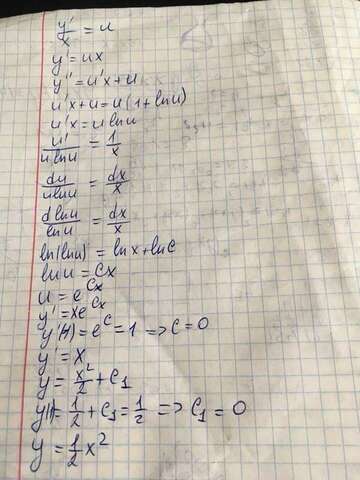 y'/x = u
y' = ux
y'' = u'x+u
u'x+u = u(1+lnu)
u'x = u lnu
u'/(u lnu) = 1/x
du/(u lnu) = dx/x
d lnu/lnu = dx/x
ln(lnu) = lnx+lnC
lnu = Cx
u = e^(Cx)
y' = xe^(Cx)
y'(1) = e^C = 1 => C = 0
y' = x
y = x²/2 + C₁
y(1) = 1/2 + C₁ = 1/2 => C₁ = 0
y = 1/2 x²